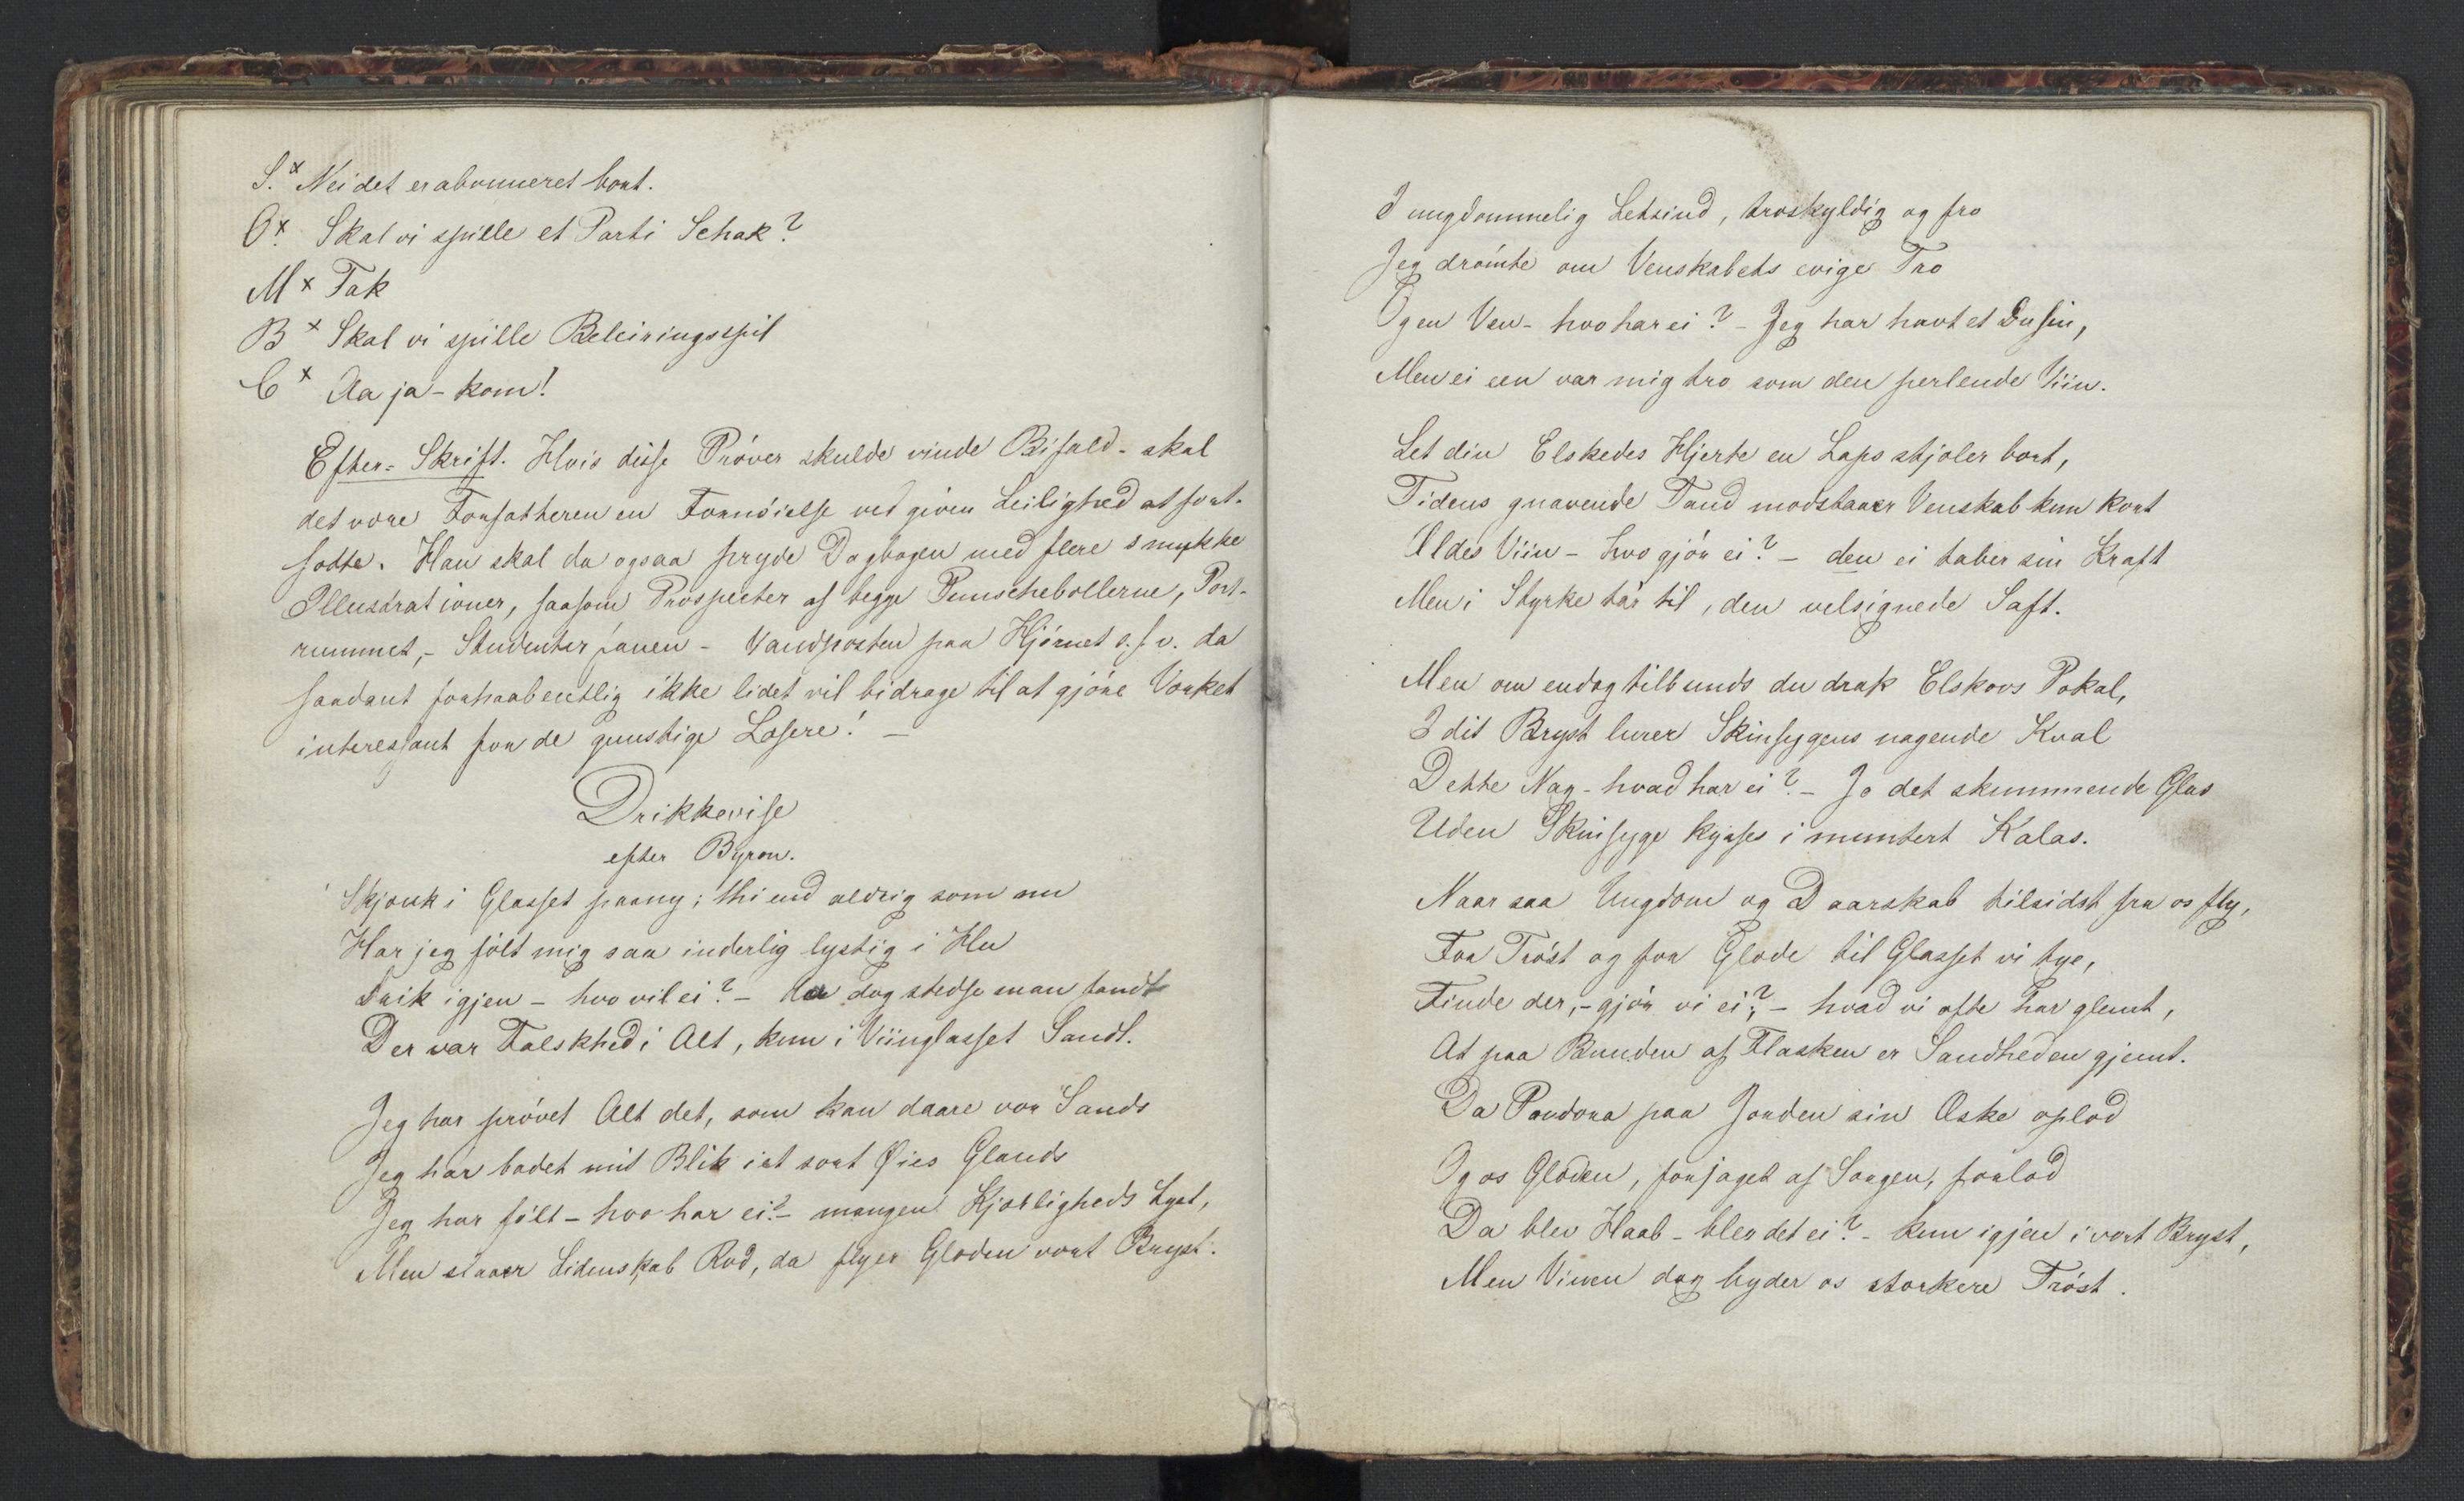 S.x Nei det er abonneret bort.
Ox. Skal vi spille et Parti Schak?
M x Tak
B x Skal vi spille Beleiringsspil
C x Aa ja - kom!
Efter-Skrift. Hvis disse Pröver skulde vinde Bifald - skal
det være Forfatteren en Fornöielse ved given Leilighed at fort-
sætte. Han skal da ogsaa pryde Dagbogen med flere smykke
Illustrationer, saasom Prospecter af begge Punschebollerne, Port-
rummet, - Studenterfanen - Vandposten paa Hjörnet o.s.v. da
saadant forhaabentlig ikke lidet vil bidrage til at gjöre Værket
interessant for de gunstige Læsere! -
Drikkevise
efter Byron.
Skjænk i Glasset paany; thi end aldrig som nu
Har jeg fölt mig saa inderlig lystig i Hu
Drik igjen - hvo vil ei? - da dog stedse man fandt
Der var Falskhed i Alt, kun i Viinglasset Sandt.
Jeg har prövet Alt det, som kan daare vor Sands
Jeg har badet mit Blik i et sort Øies Glands
Jeg har fölt - hvo har ei? - mangen Kjærligheds Lyst,
Men staaer Lidenskab Rod, da flyer Glæden vort Bryst.
I ungdommelig Letsind, troskyldig og fro
Jeg drömte om Venskabets evige Tro
Og en Ven - hvo har ei? - Jeg har havt et Dusin,
Men ei een var mig tro som den perlende Viin.
Let din Elskedes Hjerte en Laps stjæler bort,
Tidens gnavende Tand modstaaer Venskab kun kort
Ældes Viin - hvo gjör ei? - den ei taber sin Kraft
Men i Styrke tär til, den velsignede Saft.
Men om endog tilbunds du drak Elskovs Pokal,
I dit Bryst lurer Skinsygens nagende Kval
Dette Nag - hvad har ei? - Jo det skummende Glas
Uden Skinsyge kyses i muntert Kalas.
Naar saa Ungdom og Daarskab tilsidst fra os fly,
For Tröst og for Glæde til Glasset vi tye,
Finde der, - gjör vi ei? - hvad vi ofte har glemt,
At paa Bunden af Flasken er Sandheden gjemt.
Da Pandora paa Jorden sin Æske oplod
Og os Glæden, forjaget af Sorgen, forlod
Da blev Haab - blev det ei? - kun igjen i vort Bryst,
Men Vinen dog byder os stærkere Tröst.